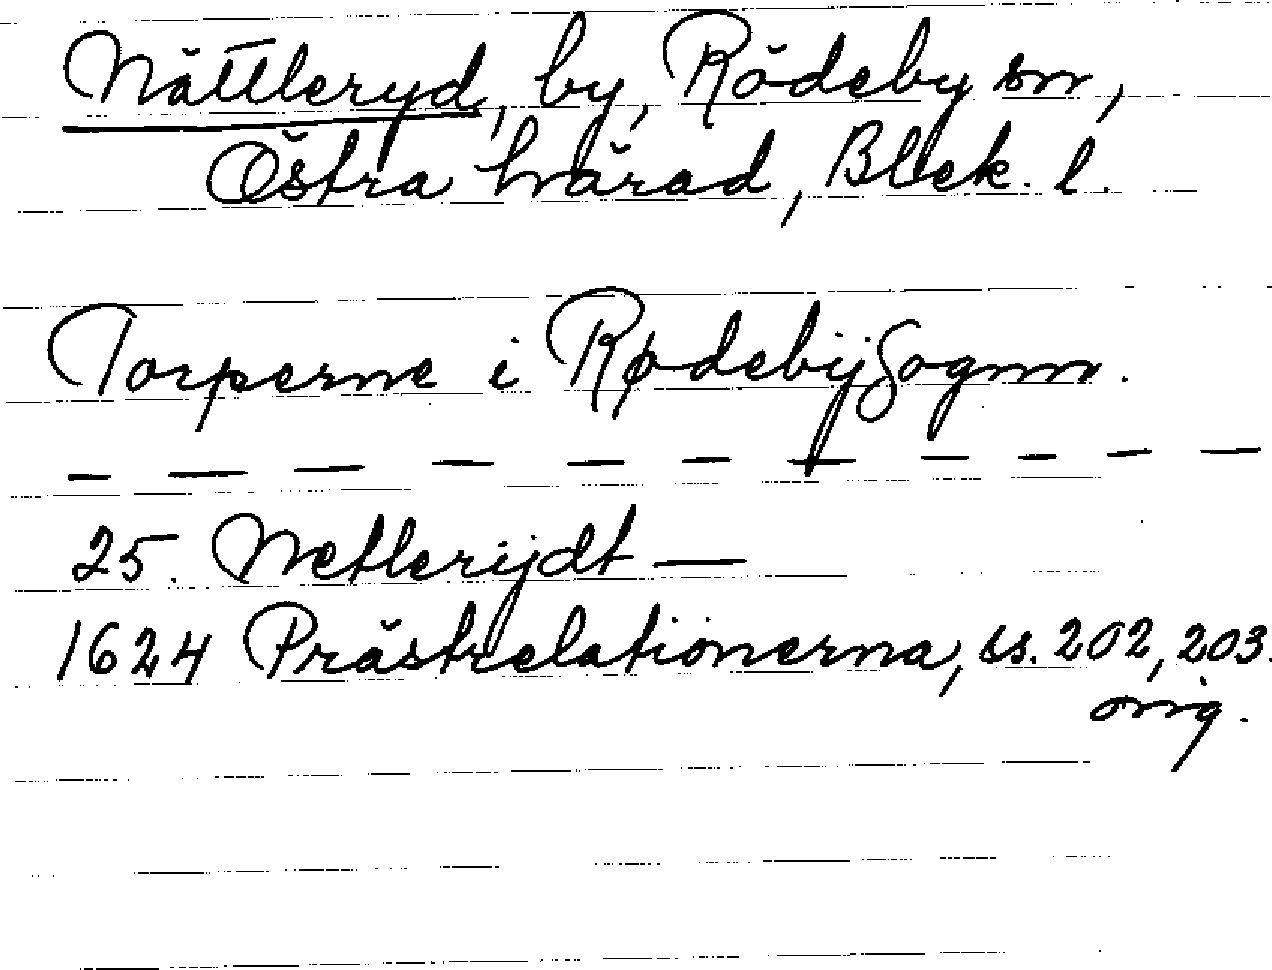 Nättleryd, by, Rödeby sn,
Östra härad, Blek. l.
Torperne i RødebijSognn.
— — — — — — — — — — —
25. Netlerijdt —
1624 Prästrelationerna, ss. 202, 203.
orig.